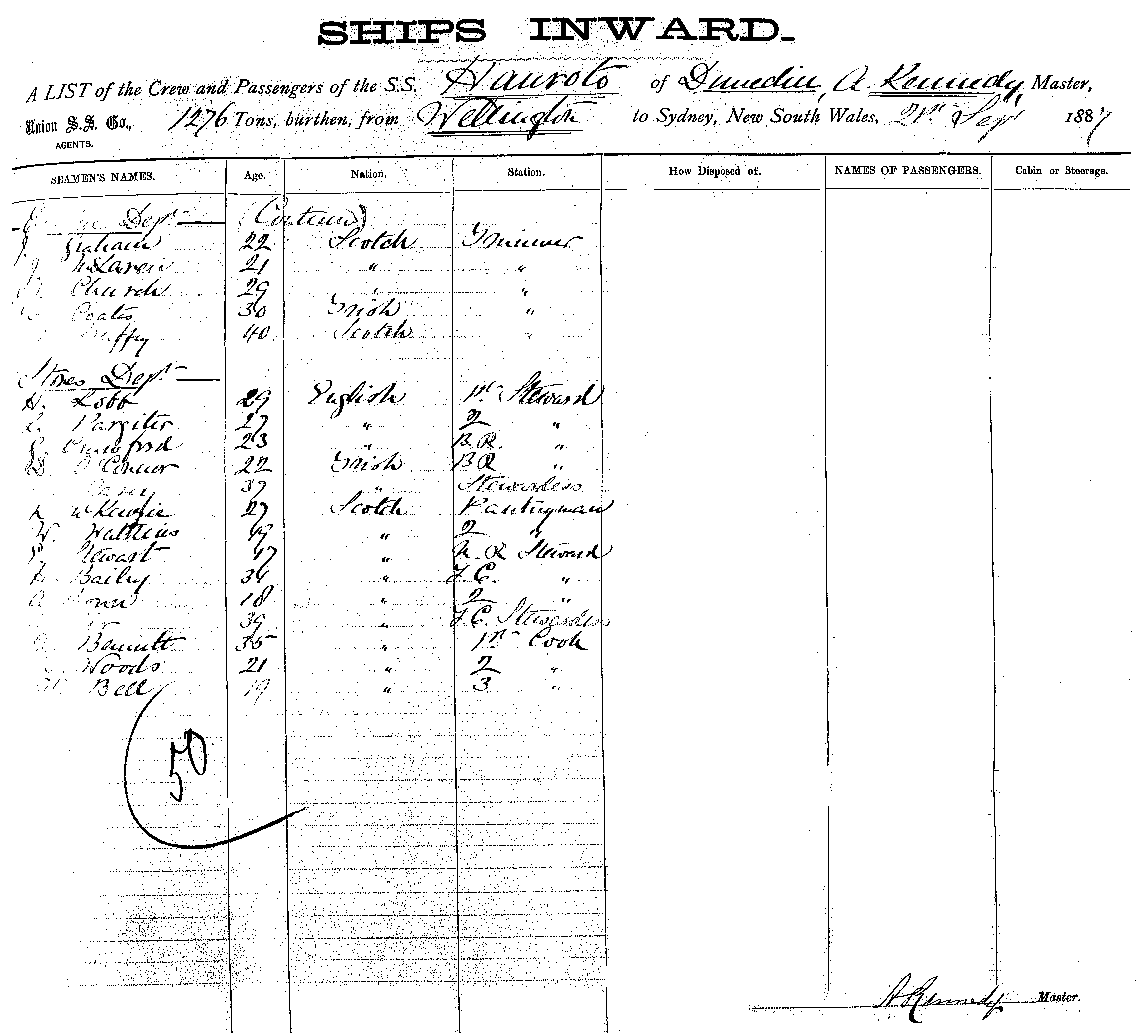 SHIPS INWARD.
A LIST of the Crew and Passengers of the S.S. Hauroto of Dunedin, A. Kennedy, Master,
Union S.S. Co., 1276 Tons, burthen, from Wellington to Sydney, New South Wales, 21st Sept 1887
AGENTS.
SEAMEN'S NAMES. Age. Nation. Station. How Disposed of. NAMES OF PASSENGERS. Cabin or Steerage.
Dept (Continued)
J. Graham 22 Scotch Trimmer
McLaren 21 " "
Church 29 " "
Coates 30 Irish "
40 Scotch "
Stores Dept
H. Lobb 29 English 1st Steward
Pargiter 27 " 2 "
23 " B.R. "
O'Connor 22 Irish B R "
37 " Stewardess
McKenzie 27 Scotch Pantryman
W. Watkins 19 " 2 "
Stewart 17 " R Steward
Bailey " F.C. "
18 " 2 "
39 " F.C. Stewardess
Bennett 35 " 1st Cook
Woods 21 " 2 "
Bell 19 " 3 "
50
A Kennedy Master.